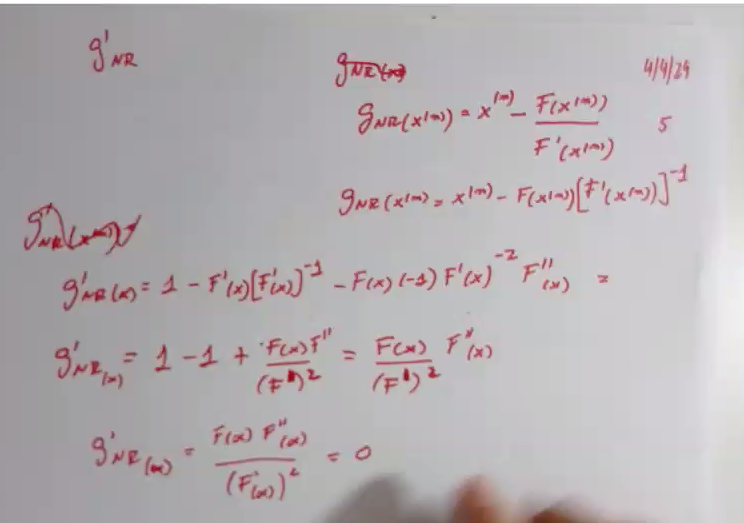 g'NR
gNR(x)
4/4/24
gNR(x⁽ᵐ⁾) = x⁽ᵐ⁾ - F(x⁽ᵐ⁾) / F'(x⁽ᵐ⁾)
5
gNR(x⁽ᵐ⁾ = x⁽ᵐ⁾ - F(x⁽ᵐ⁾)[F'(x⁽ᵐ⁾)]⁻¹
g'NR(x) = 1 - F'(x)[F'(x)]⁻¹ - F(x)(-1) F'(x)⁻² F''(x) =
g'NR(x) = 1 - 1 + F(x)F'' / (F')² = F(x) / (F')² F''(x)
g'NR(α) = F(α) F''(α) / (F'(α))² = 0